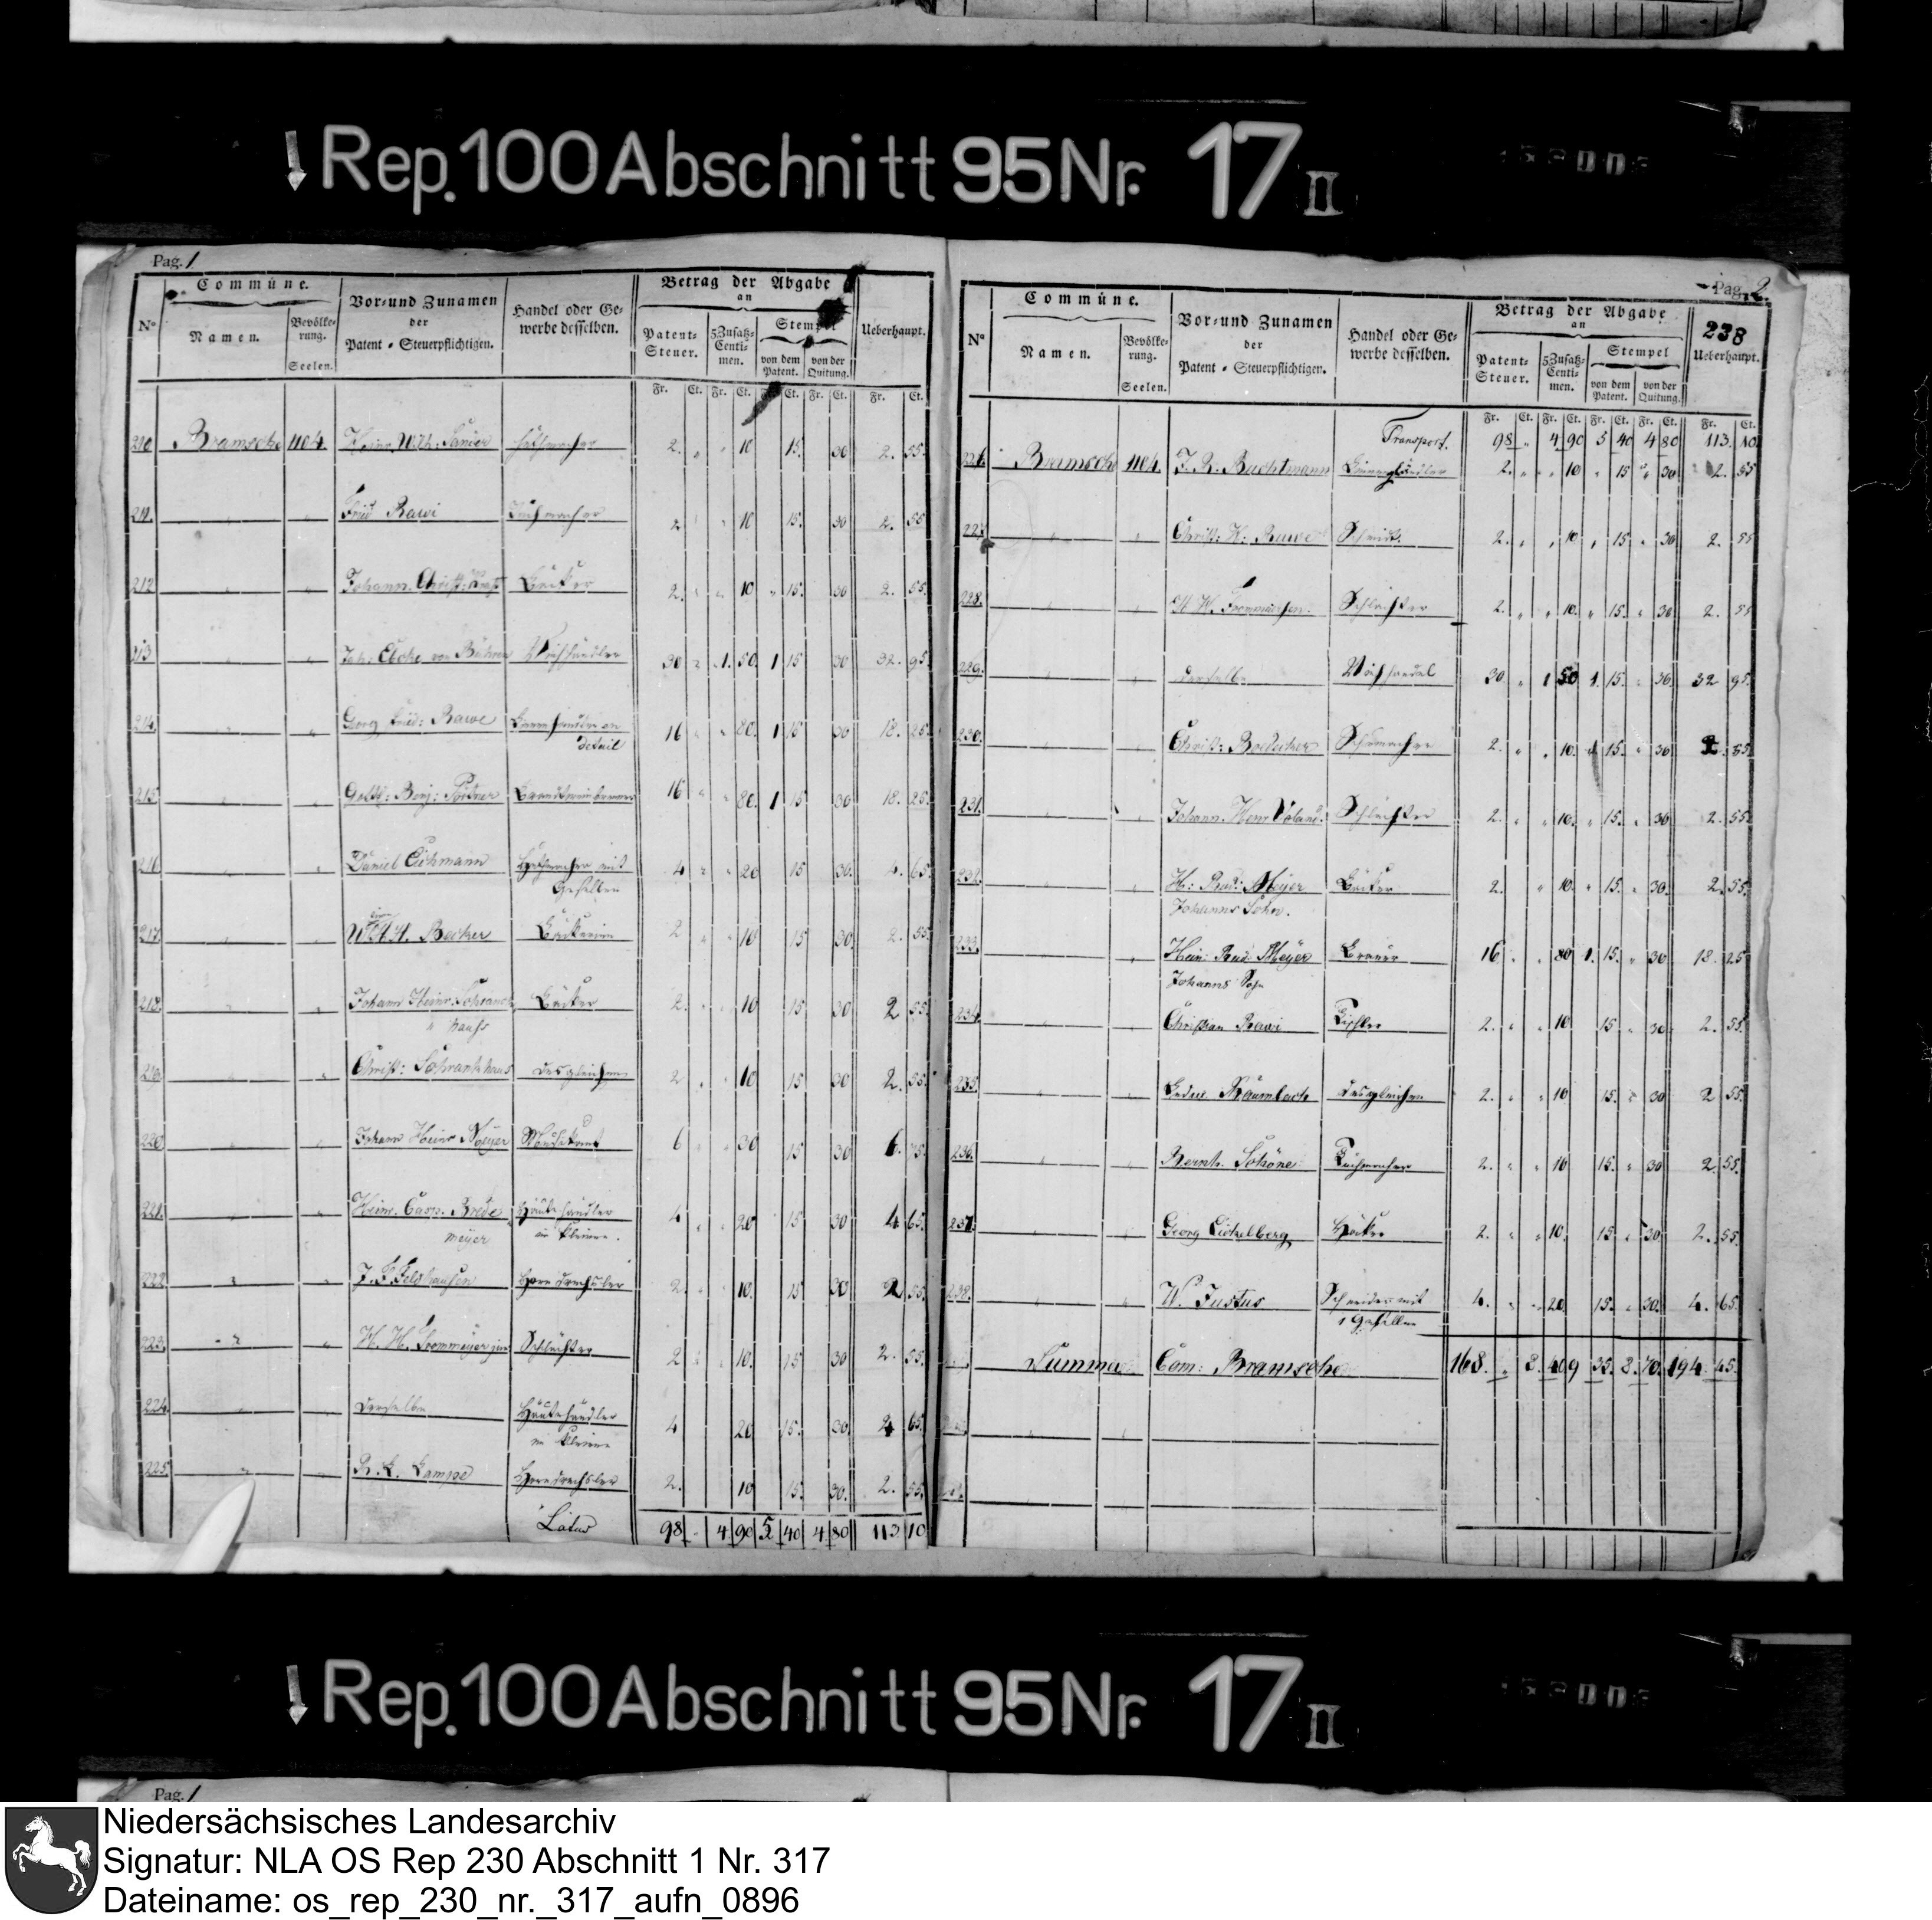 ↓ Rep. 100 Abschnitt 95 Nr. 17 II
Pag. 1
Commüne.
Vor- und Zunamen
der
Patent-Steuerpflichtigen.
Handel oder Ge-
werbe desselben.
Betrag der Abgabe
an
Ueberhaupt.
No
Namen.
Bevölke-
rung.
Seelen.
Patent-
Steuer.
5 Zusatz-
Centi-
men.
Stempel
von dem
Patent.
von der
Quitung.
Fr. Ct. Fr. Ct. Fr. Ct. Fr. Ct. Fr. Ct.
210 Bramsche 1104. 2. " " 10 15. 30 2. 55.
211. " " Fried Rawi 2 " 10 15. 30 2. 55
212 " " Johann Christ: Bäcker 2. " " 10 " 15. 30 2. 55.
213 " " Joh: von Bühren 30 " 1. 50. 1 15 30 32. 95.
214. " " Georg Fried: Rawe
detail 16 " " 80. 1 15 30 18. 25.
215. " " Gottl: Benj: 16 " " 80. 1 15 30 18. 25.
216 " " Daniel Eichmann mit
Gesellen 4 " " 20 15 30. 4. 65.
217. " " Becker Bäckerin 2 " " 10 15 30. 2. 55.
218. " " Johann Heinr. Schranck
" hauss Bäcker 2. " " 10 15 30 2 55.
219. " " Christ: Schrankhaus desgleichen 2 " " 10 15 30 2. 55.
220 " " Johann Heinr Meyer 6 " " 30 15 30 6. 75.
221. " " Heinr. Casp. Brede
meyer Häutehändler
im kleinen. 4 " 20 15 30 4. 65.
222. " " J. F. Horndrechsler 2. " " 10. 15 30 2 55.
223. " " H. H. Frommeyer jun Schlächter 2 " " 10. 15 30 2. 55.
224. " " derselbe Häutehändler
im kleinen 4 20 15. 30 4 65.
225. " " R. L. Lampe Horndrechsler 2. 10 15. 30. 2. 55.
Latus 98 " 4 90 5 40 4 80 113 10
Pag. 2.
238
Commüne.
Vor- und Zunamen
der
Patent-Steuerpflichtigen.
Handel oder Ge-
werbe desselben.
Betrag der Abgabe
an
Ueberhaupt.
No
Namen.
Bevölke-
rung.
Seelen.
Patent-
Steuer.
5 Zusatz-
Centi-
men.
Stempel
von dem
Patent.
von der
Quitung.
Fr. Ct. Fr. Ct. Fr. Ct. Fr. Ct. Fr. Ct.
Transport. 98 " 4 90 5 40 4 80 113. 10.
226. Bramsch 1104. J. R. Bachtmann 2. " " 10 " 15 " 30 2. 55
227. " " Christ: H: Rawe Schmidt. 2. " " 10 " 15 " 30 2. 55
228. " " Schlachter 2. " " 10. " 15. " 30 2. 55
229. " " derselbe 30. " 1 50 1. 15. " 30. 32 95.
230. " " Christ: Schumacher 2. " " 10. 15. " 30 2. 55.
231. " " Johann Henr Voland. Schlachter 2. " " 10. " 15. " 30 2. 55.
232. " H: Rud: Meyer
Johanns Sohn. Bäcker 2. " 10. " 15. " 30. 2. 55.
233. " Hein: Rud: Meyer
Johanns Sohn Brauer 16 " " 80 1. 15. " 30 18. 25
234. " " Christian Rawi Tischler 2. " " 10 15 " 30 2. 55.
235. " " Baumbach desgleichen 2. " " 10 15. " 30 2 55.
236. " " Bernh. Schöne 2. " " 10 15. " 30 2. 55.
237. " " Georg Eichelberg Höcker 2. " " 10. 15 " 30 2. 55.
238. " " W. Justus Schneider mit
1 Gesellen 4. " " 20 15. " 30. 4. 65.
Summa Com: Bramsche 168. " 8. 40 9 35. 8. 70. 194. 45.
↓ Rep. 100 Abschnitt 95 Nr. 17 II
Pag. 1
Niedersächsisches Landesarchiv
Signatur: NLA OS Rep 230 Abschnitt 1 Nr. 317
Dateiname: os_rep_230_nr._317_aufn_0896